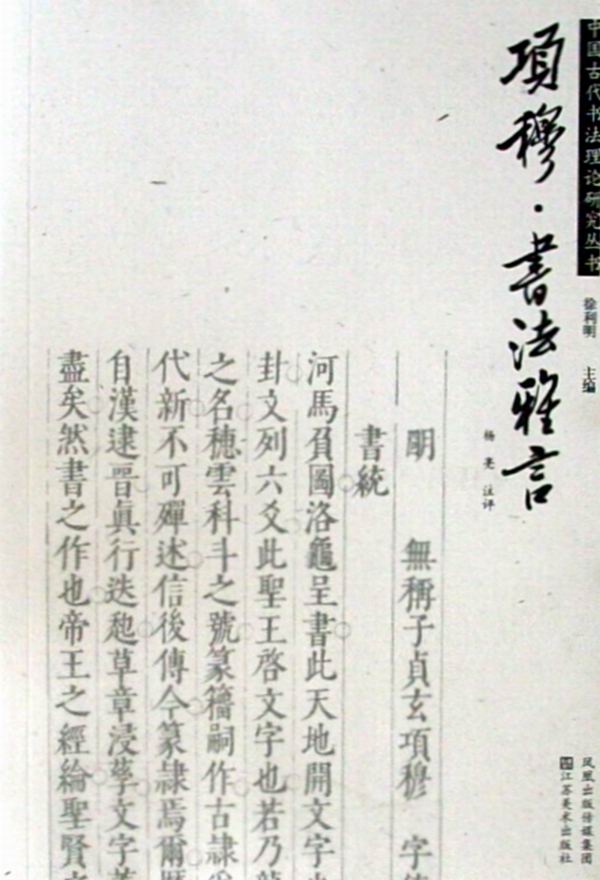 中国古代书法理论研究丛书
徐利明 主编
項穆·書法雅言
杨亮 注评
明 無稱子貞玄項穆 字
書統
河馬負圖洛龜呈書此天地開文字
卦文列六爻此聖王啓文字也若乃龍
之名穗雲科斗之號篆籀嗣作古隸
代新不可殫述信後傳今篆隸焉爾歷
自漢逮晉真行迭起草章浸孳文字
盡矣然書之作也帝王之經綸聖賢之
凤凰出版传媒集团
江苏美术出版社